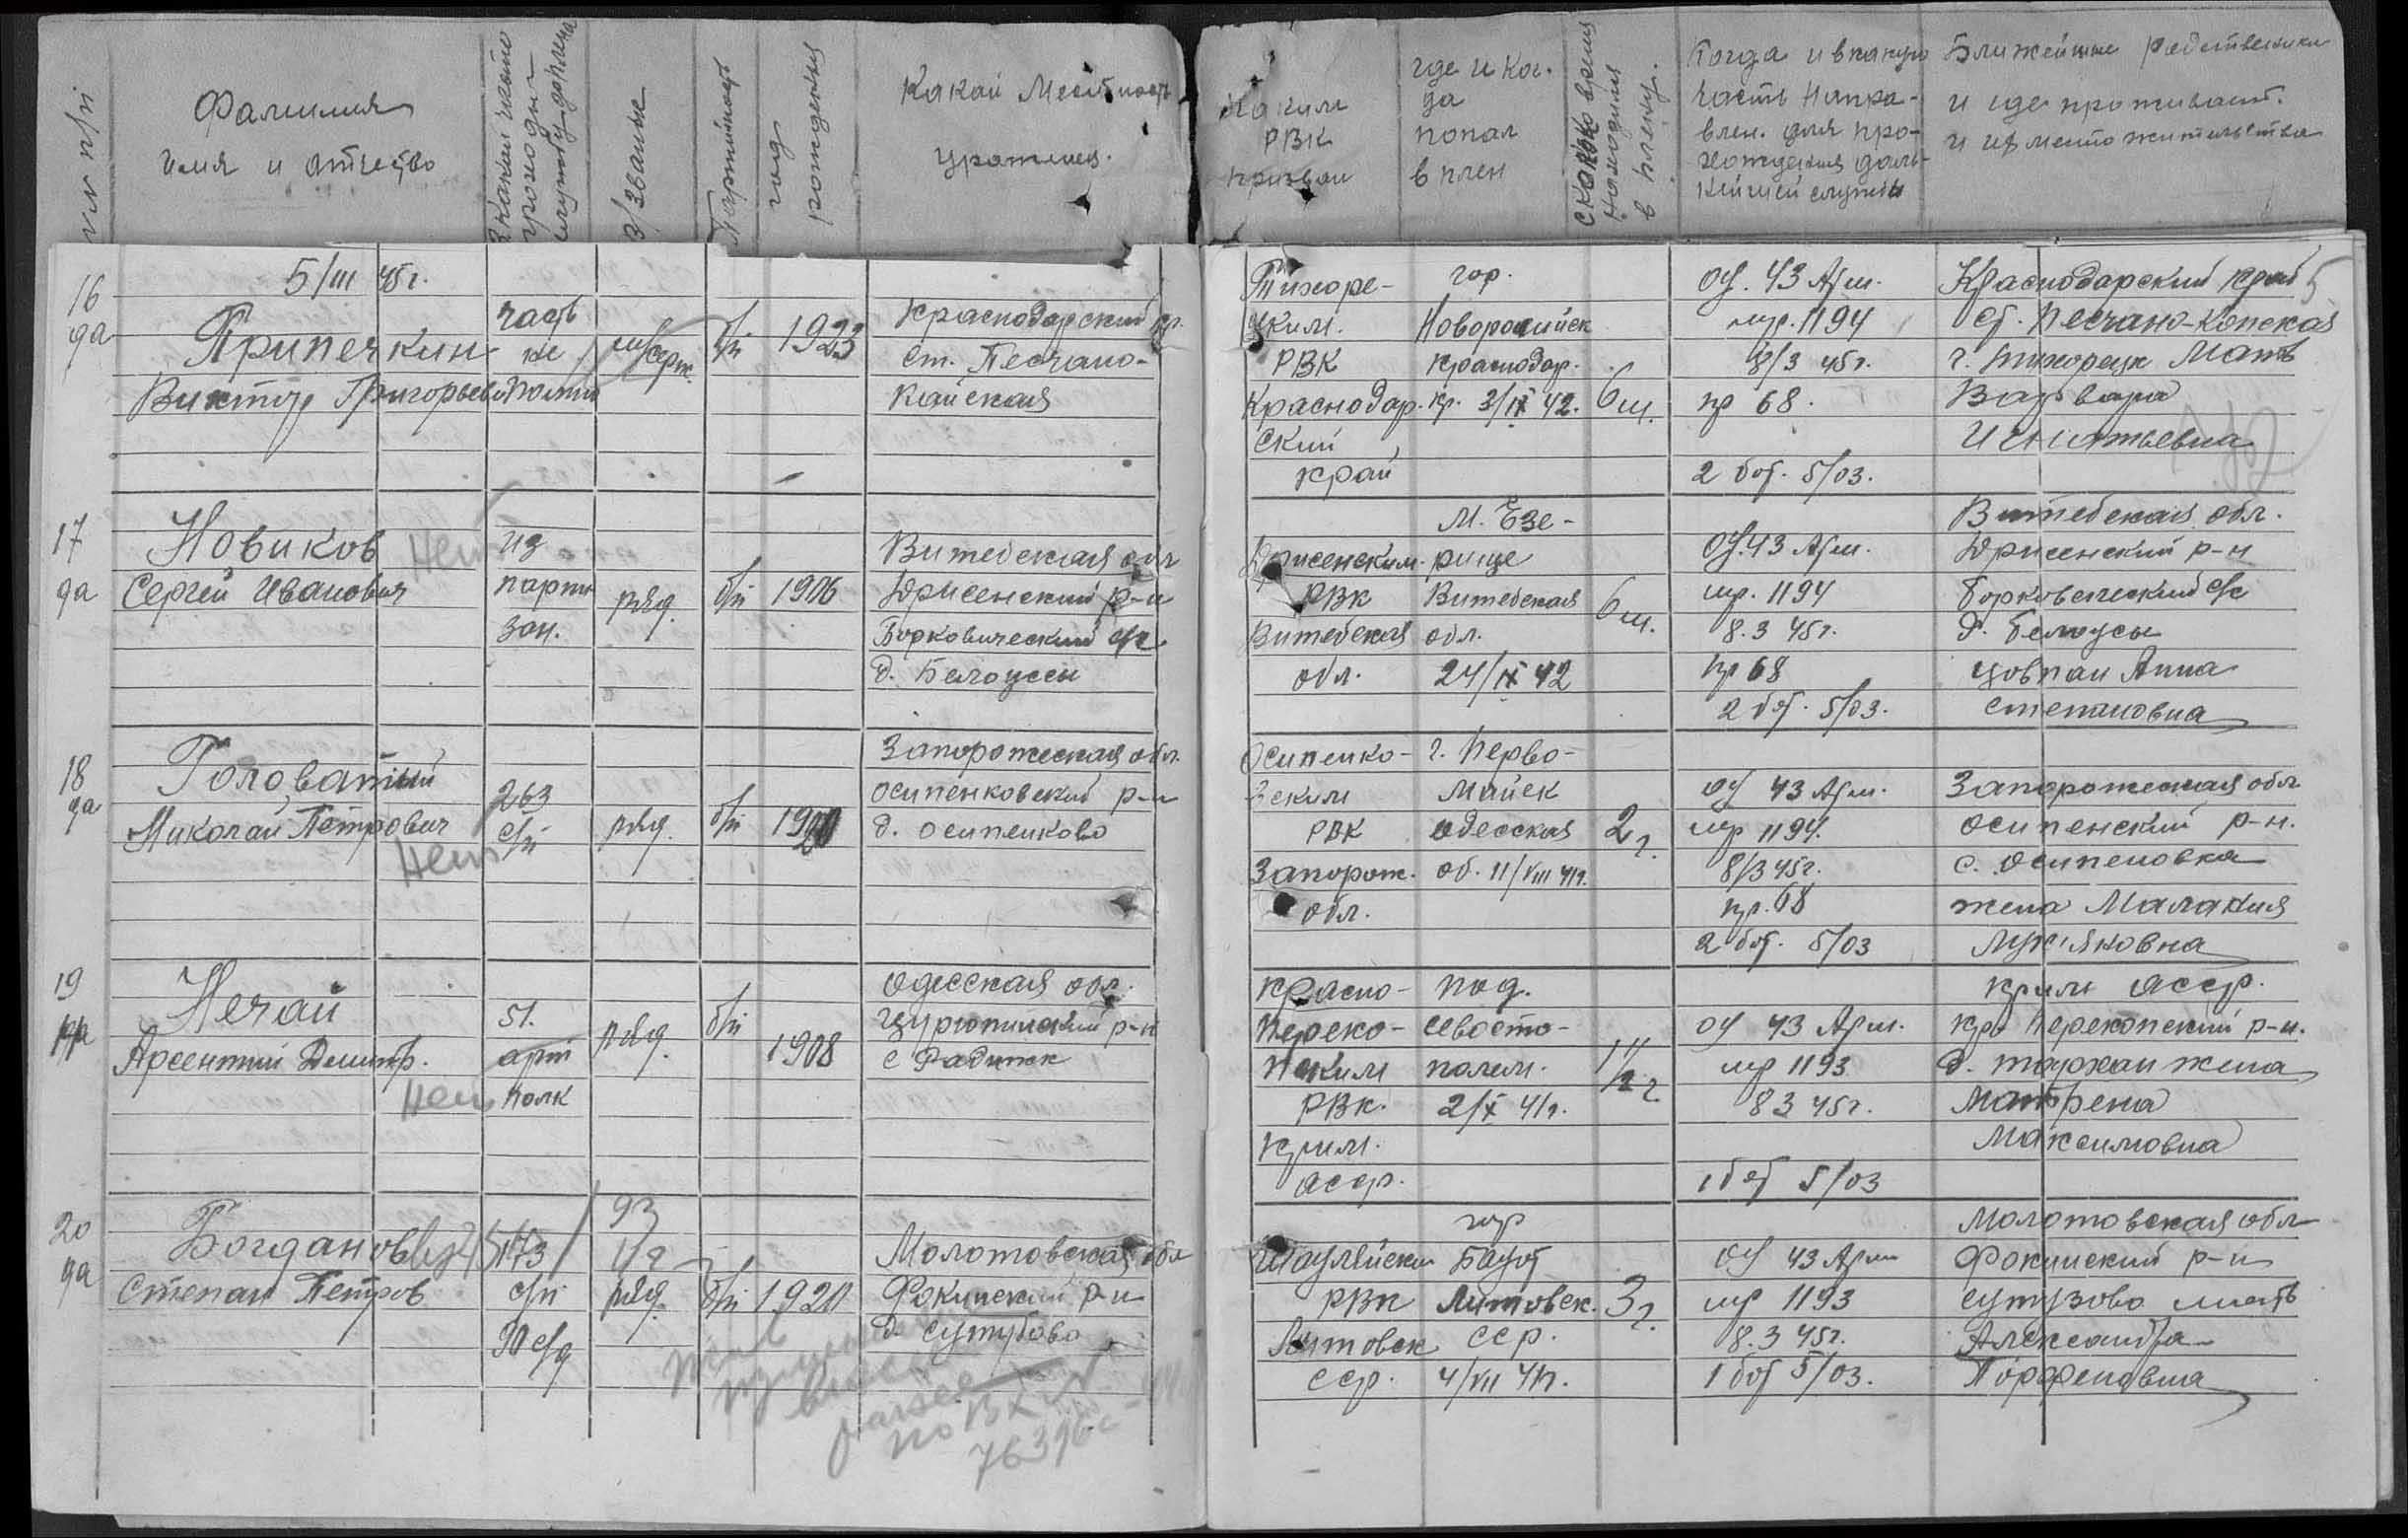 № п/п
Фамилия
имя и отчество
В какой части
проходил
службу до плена
В/звание
Партийность
год
рождения
Какой Местность
уроженец.
Каким
РВК
призван
где и ког-
да
попал
в плен
сколько время
находился
в плену.
Когда и в какую
часть напра-
влен. для про-
хождения даль-
нейшей службы
Ближайшие родственники
и где проживают.
и их место жительства
5/III 45г.
16
да
Припечкин
Виктор Григорьев
часть
не
помнит
м/серж.
б/п
1923
Краснодарский кр.
ст. Песчано-
Тихоре-
цким.
РВК
Краснодар-
ский
край
гор.
Новоросийск
Краснодар.
кр. 3/IX 42.
6 м.
ОУ. 43 Арм.
шр. 1194
8/3 45г.
пр 68.
2 бат. 5/03.
5
Краснодарский край
ст. Песчано-Копская
г. Тихорецк Мать
Варвара
Игнатьевна
17
да
Новиков
Сергей Иванович
Нет
из
парти
зан.
ряд.
б/п
1906
Витебская обл
Дрисенский р-н
Борковический с/с
д. Белоусы
Дрисенским.
РВК
Витебская
обл.
М. Езе-
рище
Витебская
обл.
24/IX 42
6 м.
ОУ.43 Арм.
шр. 1194
8.3 45г.
пр 68
2 бат. 5/03.
Витебская обл.
Дрисенский р-н
Борковический с/с
д. Белоусы
Анна
Степановна
18
да
Головатый
Николай Петрович
Нет
263
с/п
ряд.
б/п
Запорожская обл.
Осипенковский р-н
д. Осипенково
Осипенко-
вским
РВК
Запорож.
обл.
г. Перво-
майск
одесская
об. 11/VIII 41г.
2 г.
ОУ 43 Арм.
шр 1194.
8/3 45г.
пр. 68
2 бат. 5/03
Запорожская обл
Осипенский р-н.
с. Осипеновка
жена Малакия
Лукяковна
19
Нечай
Арсентий Дмитр.
Нет
51.
арт
полк
ряд.
б/п
1908
Одесская обл.
Цурюпинский р-н
с Радинск
Красно-
Переко-
пским
РВК.
Крим.
асср.
под.
Севасто-
полем.
2/X 41г.
1 1/2 г.
ОУ 43 Арм.
шр 1193
8 3 45г.
1 бат 5/03
Крим асср.
Кр. Перекопский р-н.
д. тархан жена
Матрена
Максимовна
20
да
Богданов
Степан Петров
173
с/п
90 с/д
93
ряд.
б/п
1920
Молотовская обл
Фокинский р-н
д. Сутузово
76396с
Шауляйски
РВК
Литовск
сср.
гор
Бауст
Литовск.
сср.
4/VII 41г.
3 г.
ОУ 43 Арм
шр 1193
8.3 45г.
1 бат 5/03.
Молотовская обл
Фокинский р-н
Сутузово мать
Александра
Порфеновна